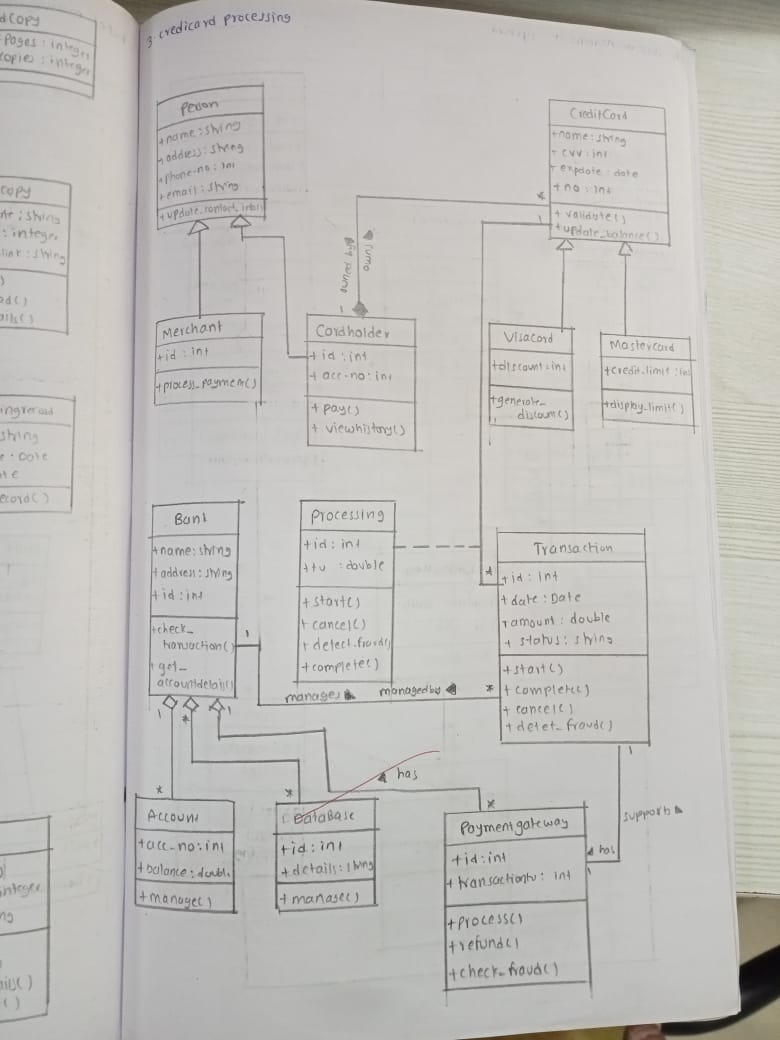 dCopy
Pages : integer
copies : integer
copy
: string
: integer
link : string
ed()
ails()
string
: Date
ecord()
integer
ails()
()
3. credicard processing
Person
+name : string
+address : string
+phone-no : int
+email : string
+update.contact.info()
CreditCard
+name : string
+ cvv : int
+ expdate : date
+ no : int
+ validate()
+update_balance()
*
1
1
Merchant
+id : int
+process_payment()
Cardholder
+ id : int
+ acc-no : int
+ pay()
+ viewhistory()
Visacard
+discount : int
+generate_
discount()
Mastercard
+credit.limit : int
+display-limit()
Bank
+name : string
+address : string
+id : int
+check_
transaction()
+get_
accountdetails()
Processing
+id : int
: double
+start()
+cancel()
+detect.fraud()
+complete()
Transaction
*
+id : int
+date : Date
+amount : double
+ status : string
+start()
+ complete()
+cancel()
+detet_fraud()
1
manages
managedby
*
1
*
1
1
has
supports
*
*
*
Account
+acc-no : int
+balance : double
+manage()
DataBase
+id : int
+details : string
+manage()
Paymentgateway
+id : int
: int
+process()
+refund()
+check_fraud()
has
1